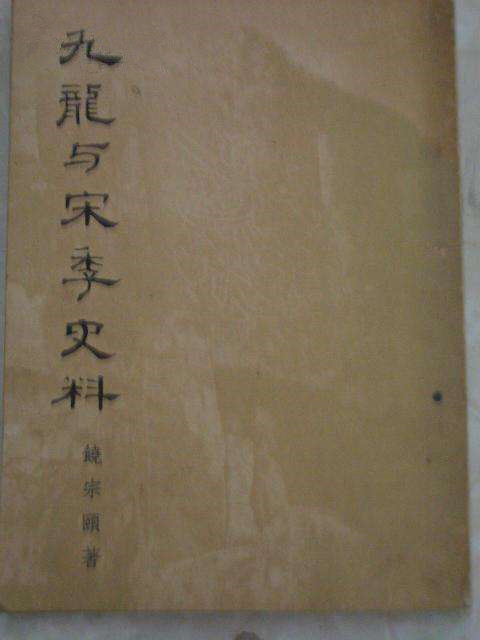 九龍与宋季史料
饒宗頤著